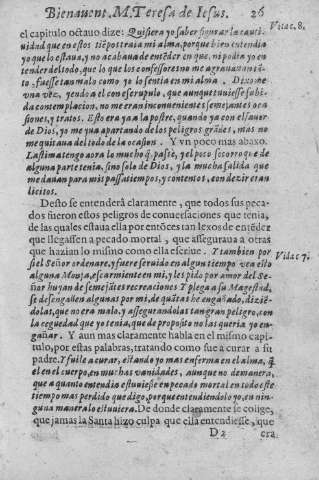 Bienauent. M. Teresa de Iesus. 26
el capitulo octauo dize: Quisiera yo saber figurar la cauti- Vitæ c. 8.
uidad que en estos tiẽpos trenia mi alma, porque bien entendia
yo que lo estaua, y no acabaua de entẽder en que, ni podia yo en
tender del todo, que lo que los confessores no me agrauauan mu-
to, fuesse tan malo como yo lo sentia en mi alma. Dixome
vna vez, yendo a el con escrupulo, que aunque tuuiesse subi-
da contemplacion, no me eran inconuenientes semejantes ocas
siones, y tratos. Esto era ya a la postre, quando ya con el fauor
de Dios, yo me yua apartando de los peligros grãdes, mas no
me quitaua del todo de la ocasion. Y vn poco mas abaxo.
Lastima tengo aora lo mucho q̃ passè, y el poco socorro que de
alguna parte tenia, sino solo de Dios, y la mucha salida que
me dauan para mis passatiempos, y contentos, con dezir eran
licitos.
Desto se entenderà claramente, que todos sus peca-
dos fueron estos peligros de conuersaciones que tenia,
de las quales estaua ella por entõces tan lexos de entẽdez
que llegassen a pecado mortal, que asseguraua a otras
que hazian lo mismo como ella escriue. Y tambien por Vitæ c. 7.
si el Señor ordenare, y fuere seruido en algun tiempo vea esto
alguna Monja, escarmienten en mi, y les pido por amor del Se-
ñor huyan de semejãtes recreaciones Y plega a su Magestad,
se desengañen algunas por mi, de quãtas he engañado, diziẽ-
dolas, que no era malo, y assegurandolas tan gran peligro, con
la ceguedad que yo tenia, que de proposito no las queria yo en-
gañar. Y aun mas claramente habla en el mismo capi-
tulo, por estas palabras, tratando como fue a curar a su
padre. Y fuile a curar, estando yo mas enferma en el alma, q̃
el en el cuerpo, en muchas vanidades, aunque no demanera,
que a quanto entendia estuuiesse en pecado mortal en todo este
tiempo mas perdido que digo, porque entendiendolo yo, en nin-
guna manera lo estuuiera. De donde claramente se colige,
que jamas la Santa hizo culpa que ella entendiesse, que
D 2 era